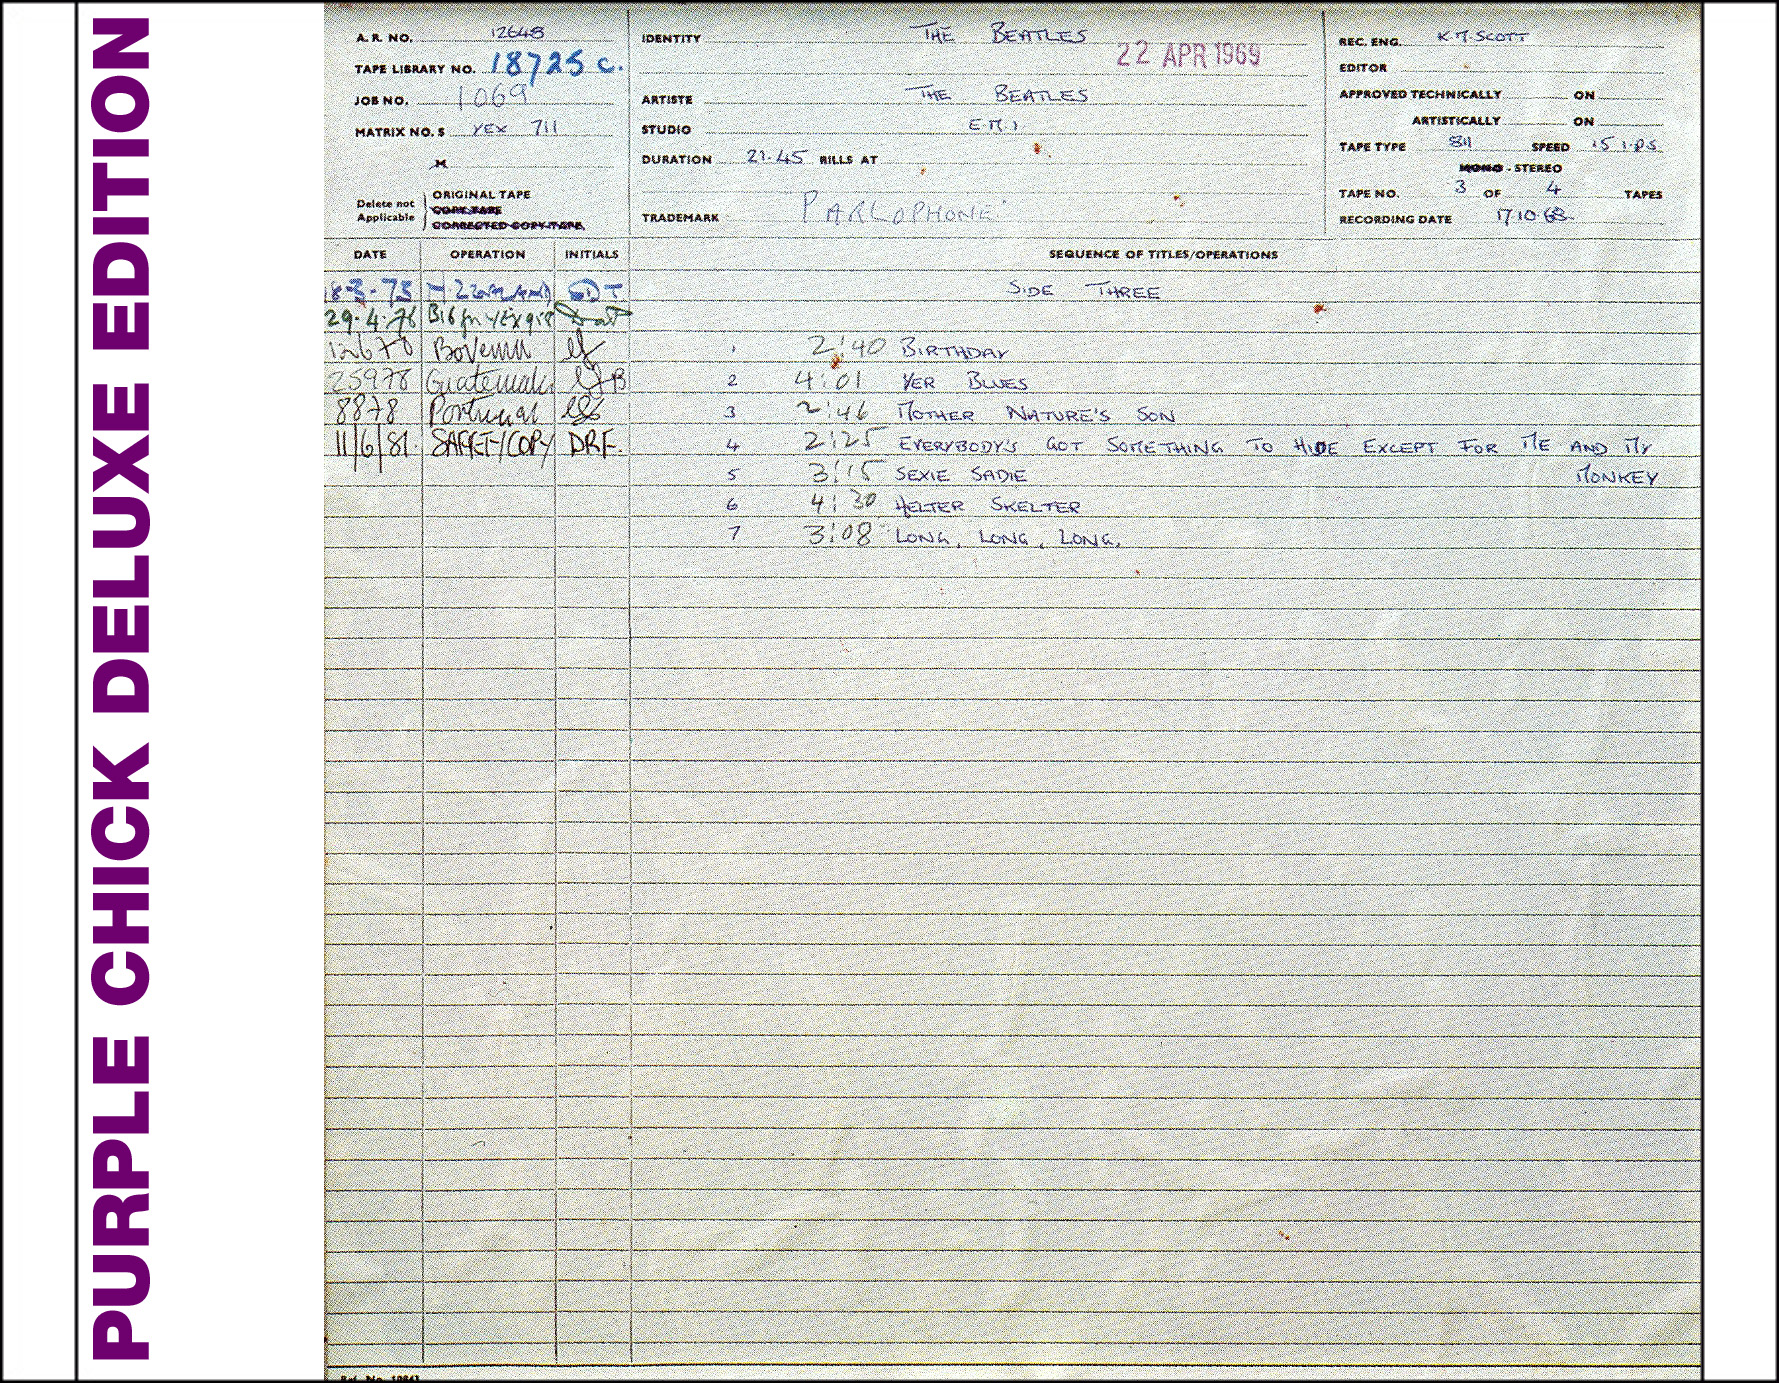 PURPLE CHICK DELUXE EDITION
A. R. NO. 12648
TAPE LIBRARY NO. 18725 C.
JOB NO. 1069
MATRIX NO. S YEX 711
M
Delete not Applicable
ORIGINAL TAPE
COPY TAPE
CORRECTED COPY TAPE,
IDENTITY THE BEATLES
22 APR 1969
ARTISTE THE BEATLES
STUDIO E.M.I.
DURATION 21.45 RILLS AT
TRADEMARK PARLOPHONE
REC. ENG. K.M. SCOTT
EDITOR
APPROVED TECHNICALLY ON
ARTISTICALLY ON
TAPE TYPE 811 SPEED 15 I.P.S.
MONO - STEREO
TAPE NO. 3 OF 4 TAPES
RECORDING DATE 17.10.68.
DATE OPERATION INITIALS SEQUENCE OF TITLES/OPERATIONS
SIDE THREE
29.4.76
1 2:40 BIRTHDAY
25978 Guatemala
2 4:01 YER BLUES
8878 Portugal
3 2:46 MOTHER NATURE'S SON
11/6/81. SAFETY COPY DRF.
4 2:25 EVERYBODY'S GOT SOMETHING TO HIDE EXCEPT FOR ME AND MY
MONKEY
5 3:15 SEXIE SADIE
6 4:30 HELTER SKELTER
7 3:08 LONG, LONG, LONG.